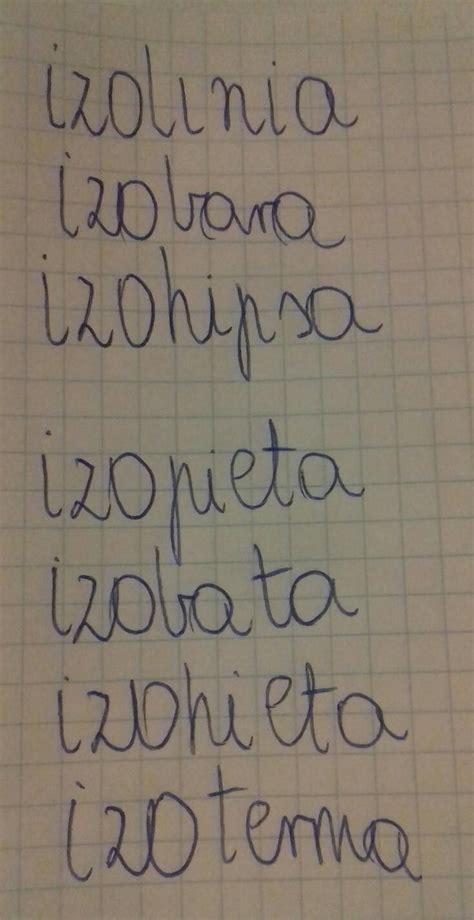 izolinia
izobara
izohipsa
izopieta
izobata
izohieta
izoterma